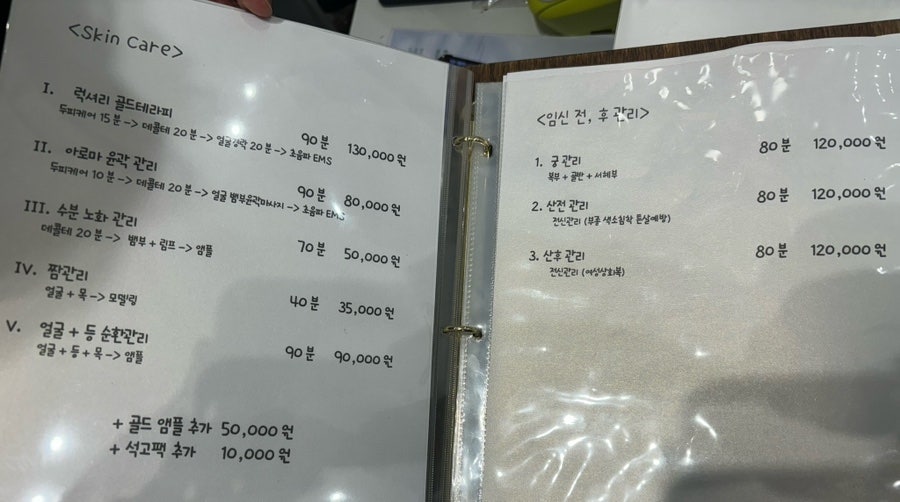 <Skin Care>
I. 럭셔리 골드테라피
90분 130,000원
두피케어 15분 -> 데콜테 20분 -> 얼굴경락 20분 -> 초음파 EMS
II. 아로마 윤곽 관리
90분 80,000원
두피케어 10분 -> 데콜테 20분 -> 얼굴 뱀부윤곽마사지 -> 초음파 EMS
III. 수분 노화 관리
70분 50,000원
데콜테 20분 -> 뱀부 + 림프 -> 앰플
IV. 짬관리
40분 35,000원
얼굴 + 목 -> 모델링
V. 얼굴 + 등 순환관리
90분 90,000원
얼굴 + 등 + 목 -> 앰플
+ 골드 앰플 추가 50,000원
+ 석고팩 추가 10,000원
<임신 전, 후 관리>
1. 궁 관리 80분 120,000원
복부 + 골반 + 서혜부
2. 산전 관리 80분 120,000원
전신관리 (부종 색소침착 튼살예방)
3. 산후 관리 80분 120,000원
전신관리 (여성상회복)